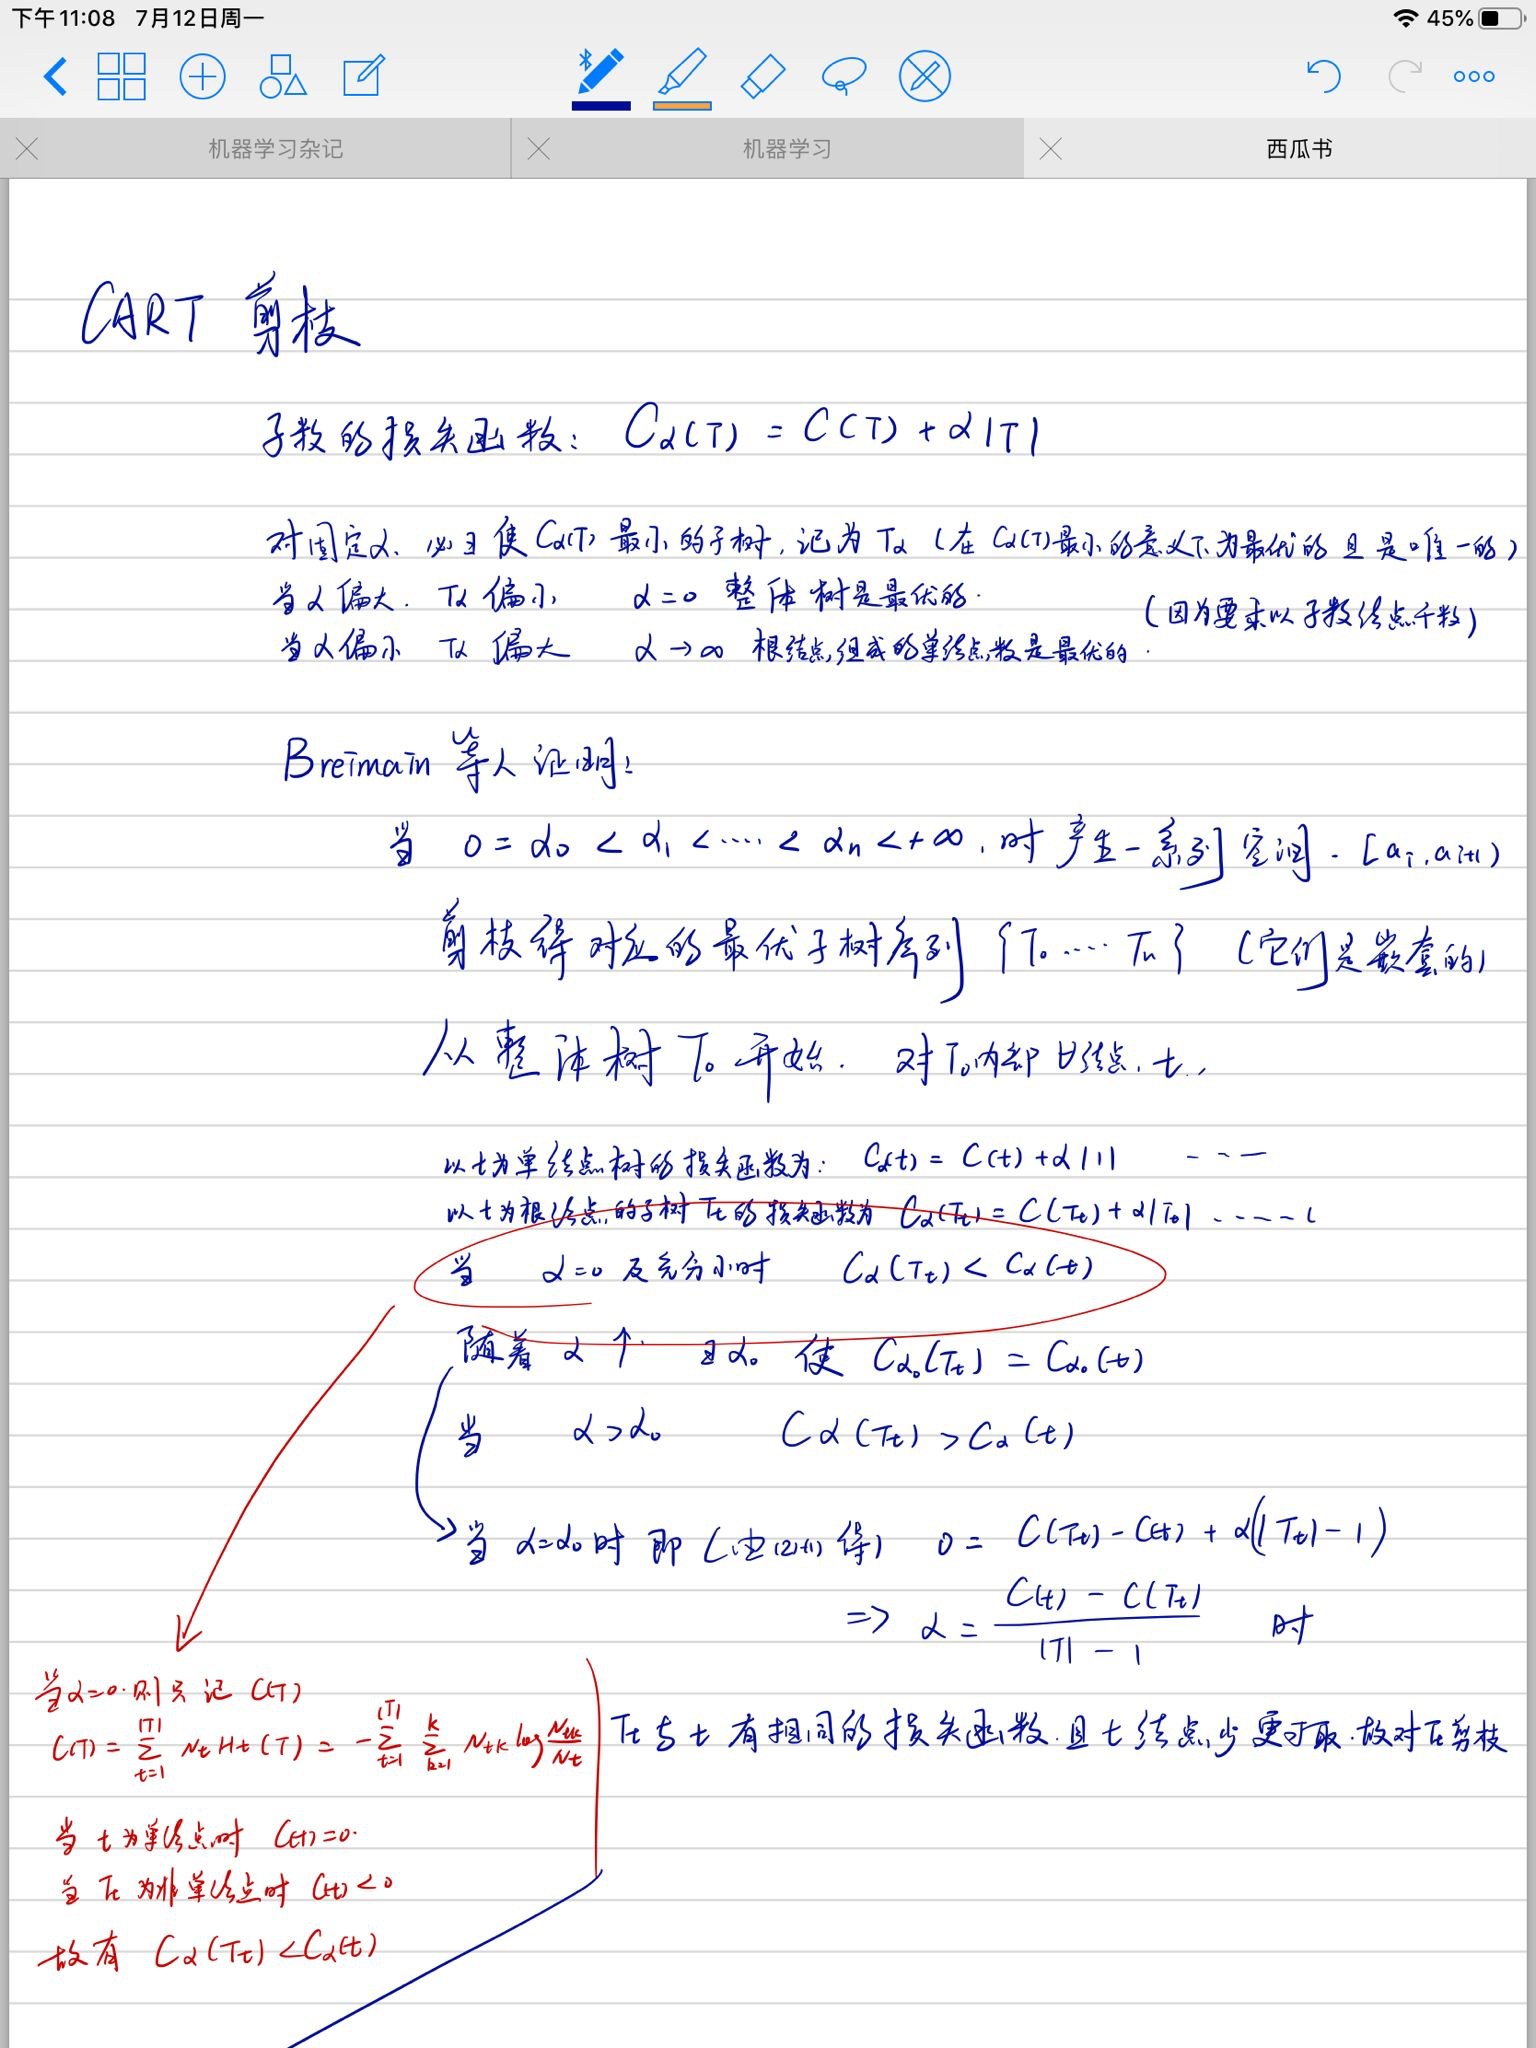 下午11:08 7月12日周一
45%
机器学习杂记
机器学习
西瓜书
CART 剪枝
子数的损失函数: Cα(T) = C(T) + α|T|
对固定α、必∃使Cα(T)最小的子树,记为Tα (在Cα(T)最小的意义下为最优的且是唯一的)
当α偏大. Tα偏小 α=0 整体树是最优的.
(因为要求以子数结点个数)
当α偏小 Tα偏大 α→∞ 根结点组成的单结点数是最优的.
Breimain 等人证明:
当 0=α₀<α₁<····<αn<+∞,时产生一系列空间. [ai,ai+1)
剪枝得对应的最优子树序列{T₀····Tn} (它们是嵌套的)
从整体树T₀开始. 对T₀内部∀结点,t..
以t为单结点树的损失函数为: Cα(t) = C(t)+α|1| ---
以t为根结点的子树Tt的损失函数为 Cα(Tt) = C(Tt)+α|Tt| -----(
当 α=0及充分小时 Cα(Tt)<Cα(t)
随着α↑. ∃α₀使 Cα₀(Tt) = Cα₀(t)
当 α>α₀ Cα(Tt)>Cα(t)
当α=α₀时即(由(2)+(1)得) 0 = C(Tt)-C(t)+α(|Tt|-1)
=> α = C(t)-C(Tt) / |T|-1 时
Tt与t有相同的损失函数.且t结点少更可取.故对Tt剪枝
当α=0.则只记C(T)
C(T) = ∑_{t=1}^{|T|} Nt Ht(T) = -∑_{t=1}^{|T|} ∑_{k=1}^{K} Ntk log Ntk/Nt
当t为单结点时 C(t)=0.
当Tt为非单结点时 C(t)<0
故有 Cα(Tt)<Cα(t)